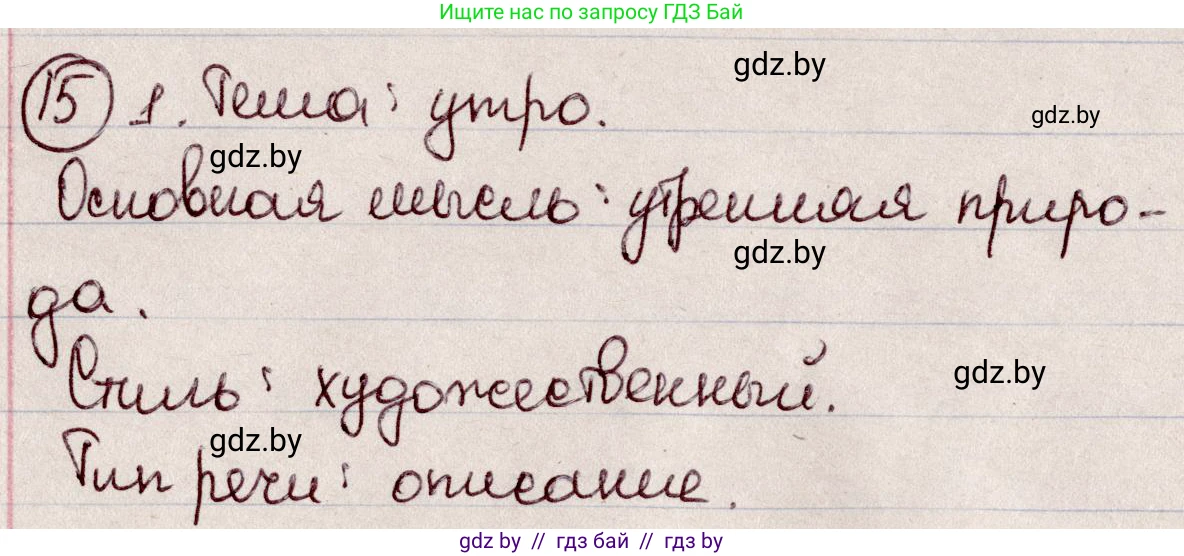 Ищите нас по запросу ГДЗ Бай
gdz.by
15 1. Тема: утро.
gdz.by
gdz.by
Основная мысль: утренняя приро-
gdz.by
да.
Стиль: художественный.
gdz.by
gdz.by
Тип речи: описание.
gdz by // гдз бай // гдз by